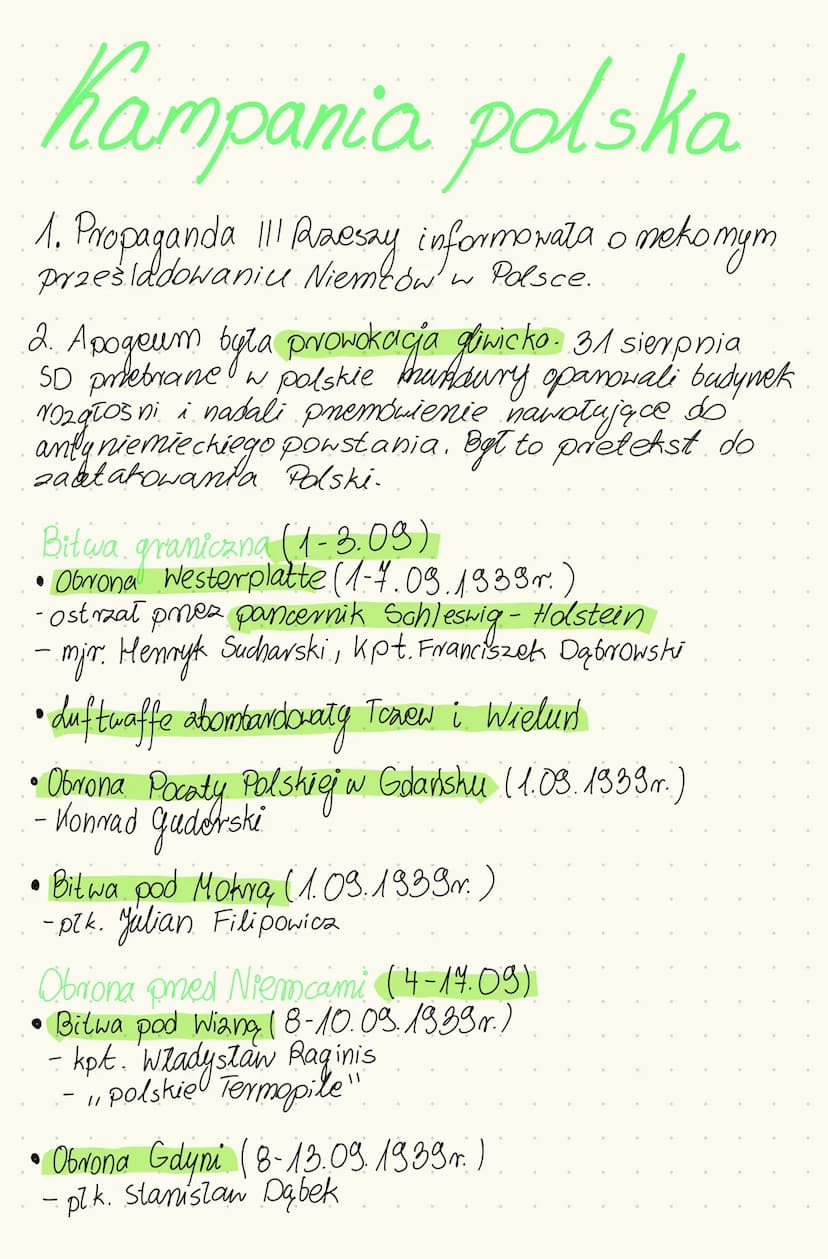 Kampania polska
1. Propaganda III Rzeszy informowała o rzekomym
prześladowaniu Niemców w Polsce.
2. Apogeum była prowokacja gliwicka. 31 sierpnia
SD przebrane w polskie mundury opanowali budynek
rozgłośni i nadali przemówienie nawołujące do
antyniemieckiego powstania. Był to pretekst do
zaatakowania Polski.
Bitwa graniczna (1-3.09)
• Obrona Westerplatte (1-7.09.1939r.)
- ostrzał przez pancernik Schleswig-Holstein
- mjr. Henryk Sucharski, kpt. Franciszek Dąbrowski
• Luftwaffe zbombardowały Tczew i Wieluń
• Obrona Poczty Polskiej w Gdańsku (1.09.1939r.)
- Konrad Guderski
• Bitwa pod Mokrą (1.09.1939r.)
- płk. Julian Filipowicz
Obrona przed Niemcami (4-17.09)
• Bitwa pod Wizną (8-10.09.1939r.)
- kpt. Władysław Raginis
- „polskie Termopile"
• Obrona Gdyni (8-13.09.1939r.)
- płk. Stanisław Dąbek